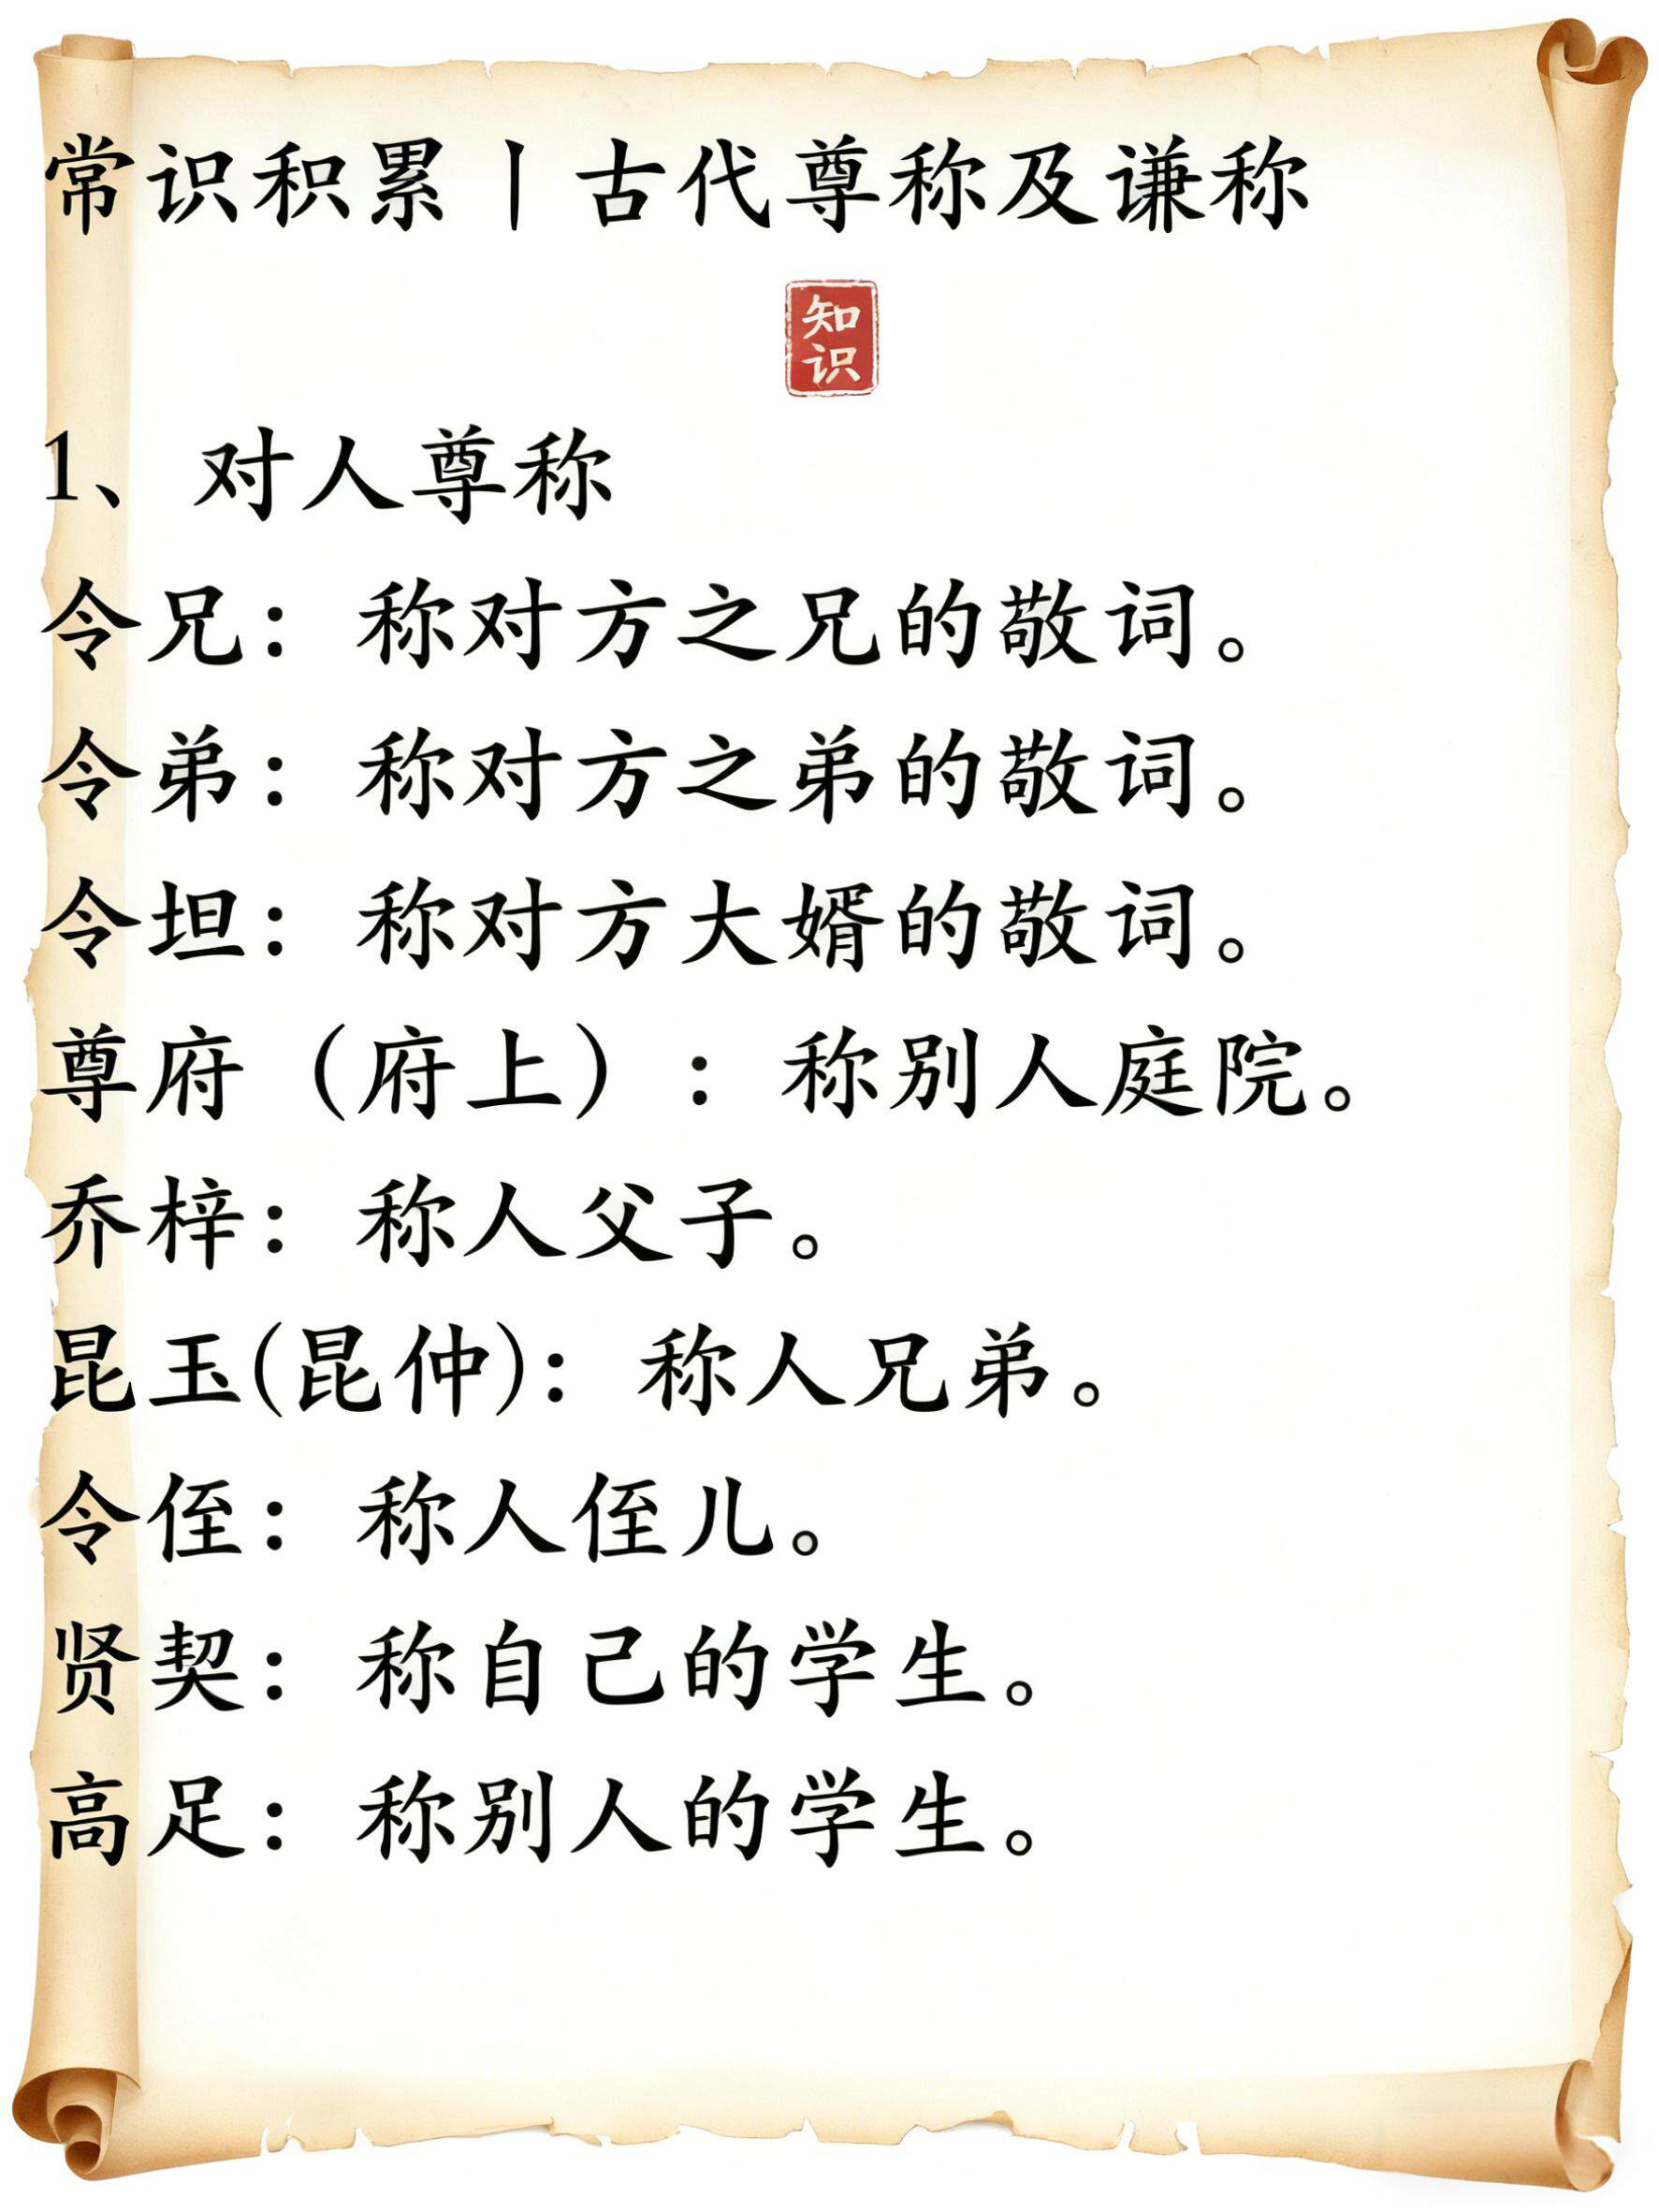 常识积累丨古代尊称及谦称
知
识
1、 对人尊称
令兄：称对方之兄的敬词。
令弟：称对方之弟的敬词。
令坦：称对方大婿的敬词。
尊府（府上）：称别人庭院。
乔梓：称人父子。
昆玉(昆仲)：称人兄弟。
令侄：称人侄儿。
贤契：称自己的学生。
高足：称别人的学生。